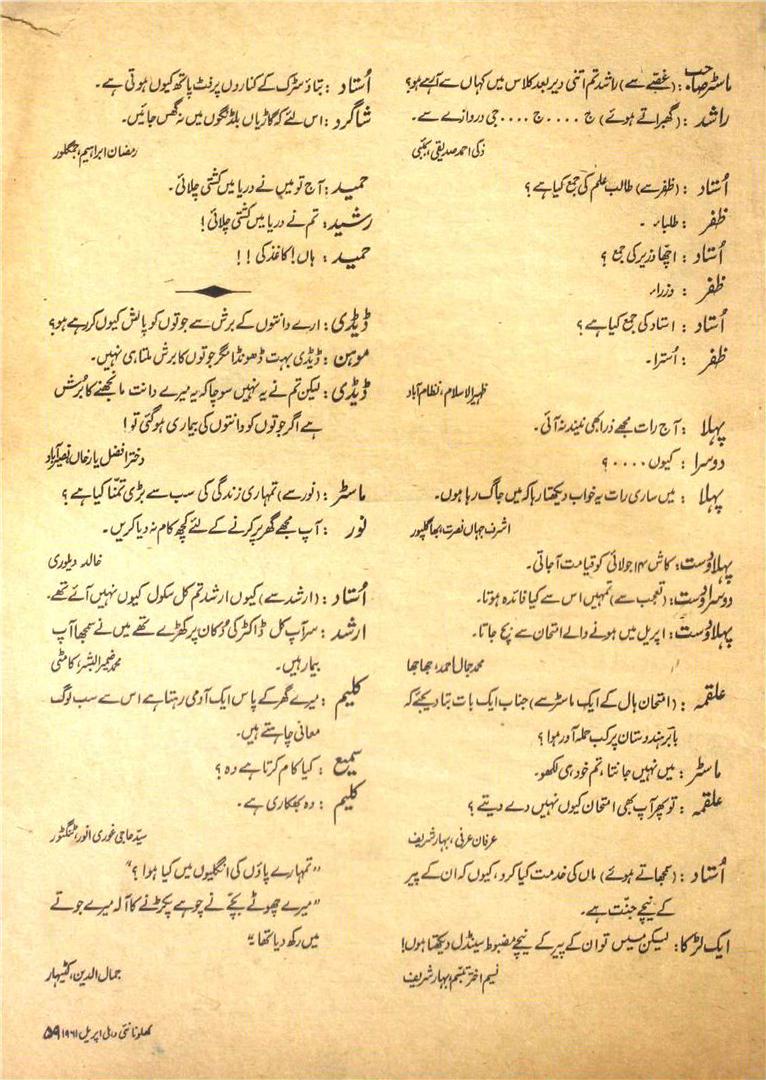 ماسٹر صاحب : (غصّے سے) راشد تم اتنی دیر بعد کلاس میں کہاں سے آرہے ہو؟
راشد : (گھبراتے ہوئے) ج .... ج .... جی دروازے سے۔
ذکی احمد صدیقی، بمبئی
اُستاد : (ظفر سے) طالب علم کی جمع کیا ہے ؟
ظفر : طلباء ۔
اُستاد : اچھا وزیر کی جمع ؟
ظفر : وزراء
اُستاد : استاد کی جمع کیا ہے ؟
ظفر : اُسترا۔
ظہیر الاسلام، نظام آباد
پہلا : آج رات مجھے ذرا بھی نیند نہ آئی۔
دوسرا : کیوں .... ؟
پہلا : میں ساری رات یہ خواب دیکھتا رہا کہ میں جاگ رہا ہوں۔
اشرف جہاں نصرت، بھاگلپور
پہلا دوست : کاش ۱۴ جولائی کو قیامت آجاتی۔
دوسرا دوست : (تعجب سے) تمہیں اس سے کیا فائدہ ہوتا۔
پہلا دوست : اپریل میں ہونے والے امتحان سے بچ جاتا۔
محمد جمال احمد، جھاجھا
علقمہ : (امتحان ہال کے ایک ماسٹر سے) جناب ایک بات بتا دیجئے کہ
بابر ہندوستان پر کب حملہ آور ہوا ؟
ماسٹر : میں نہیں جانتا، تم خود ہی لکھو۔
علقمہ : تو پھر آپ بھی امتحان کیوں نہیں دے دیتے ؟
عرفان عرفی، بہار شریف
اُستاد : (سمجھاتے ہوئے) ماں کی خدمت کیا کرو، کیوں کہ ان کے پیر
کے نیچے جنّت ہے۔
ایک لڑکا : لیکن میں تو ان کے پیر کے نیچے مضبوط سینڈل دیکھتا ہوں!
نسیم اختر تبسّم، بہار شریف
اُستاد : بتاؤ سڑک کے کناروں پر فٹ پاتھ کیوں ہوتی ہے۔
شاگرد : اس لئے کہ گاڑیاں بلڈنگوں میں نہ گھس جائیں۔
رمضان ابراہیم، جنگلور
حمید : آج تو میں نے دریا میں کشتی چلائی۔
رشید : تم نے دریا میں کشتی چلائی !
حمید : ہاں ! کاغذ کی ! !
ڈیڈی : ارے دانتوں کے برش سے جوتوں کو پالش کیوں کررہے ہو؟
موہن : ڈیڈی بہت ڈھونڈا مگر جوتوں کا برش ملتا ہی نہیں۔
ڈیڈی : لیکن تم نے یہ نہیں سوچا کہ یہ میرے دانت مانجھنے کا برش
ہے اگر جوتوں کو دانتوں کی بیماری ہوگئی تو !
دختر افضل یارخاں نصیرآباد
ماسٹر : (نور سے) تمہاری زندگی کی سب سے بڑی تمنّا کیا ہے ؟
نور : آپ مجھے گھر پر کرنے کے لئے کچھ کام نہ دیا کریں۔
خالد دیلوری
اُستاد : (ارشد سے) کیوں ارشد تم کل سکول کیوں نہیں آئے تھے۔
ارشد : سر آپ کل ڈاکٹر کی دُکان پر کھڑے تھے میں نے سمجھا آپ
بیمار ہیں۔ محمد ضمیر البشر، کامٹی
کلیم : میرے گھر کے پاس ایک آدمی رہتا ہے اس سے سب لوگ
معافی چاہتے ہیں۔
سمیع : کیا کام کرتا ہے وہ ؟
کلیم : وہ بھکاری ہے۔
سیّد حاجی غوری انور، ٹنگٹور
"تمہارے پاؤں کی انگلیوں میں کیا ہوا ؟"
"میرے چھوٹے بچّے نے چوہے پکڑنے کا آلہ میرے جوتے
میں رکھ دیا تھا"
جمال الدین، کٹیہار
کھلونا نئی دہلی اپریل ۱۹۶۱ ۵۹